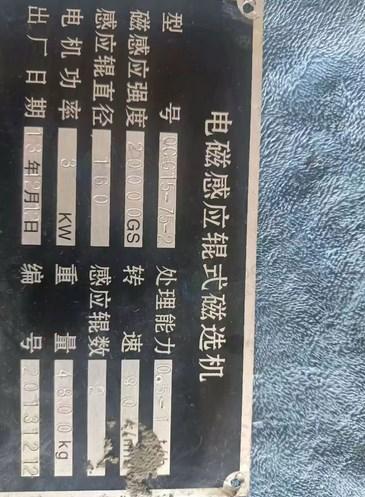 电磁感应辊式磁选机
型号 QCG15-75-2 处理能力 0.5-1
磁感应强度 20000GS 转速
感应辊直径 150 感应辊数 2
电机功率 3 KW 重量 4800kg
出厂日期 13年2月1日 编号 2013121